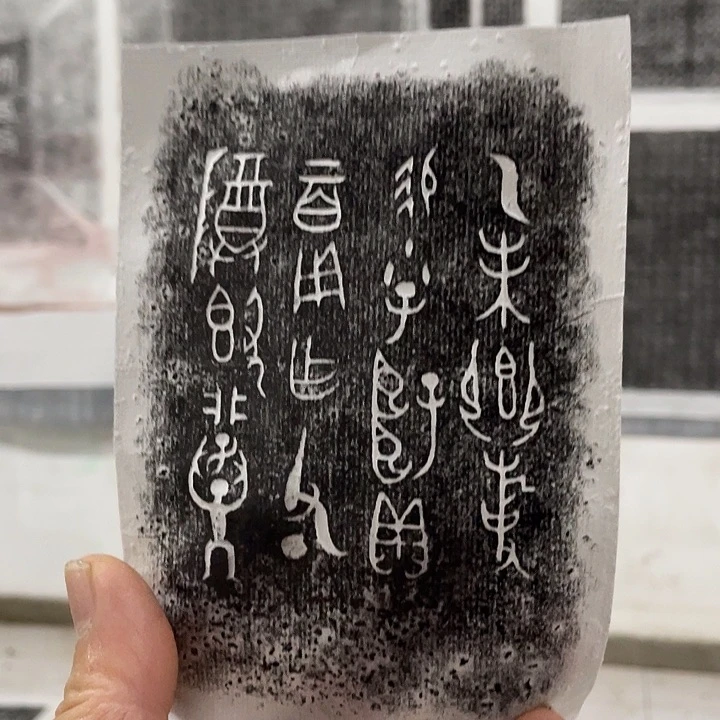 乙未鄉事
易小子貝
二百用乍父丁
尊簋